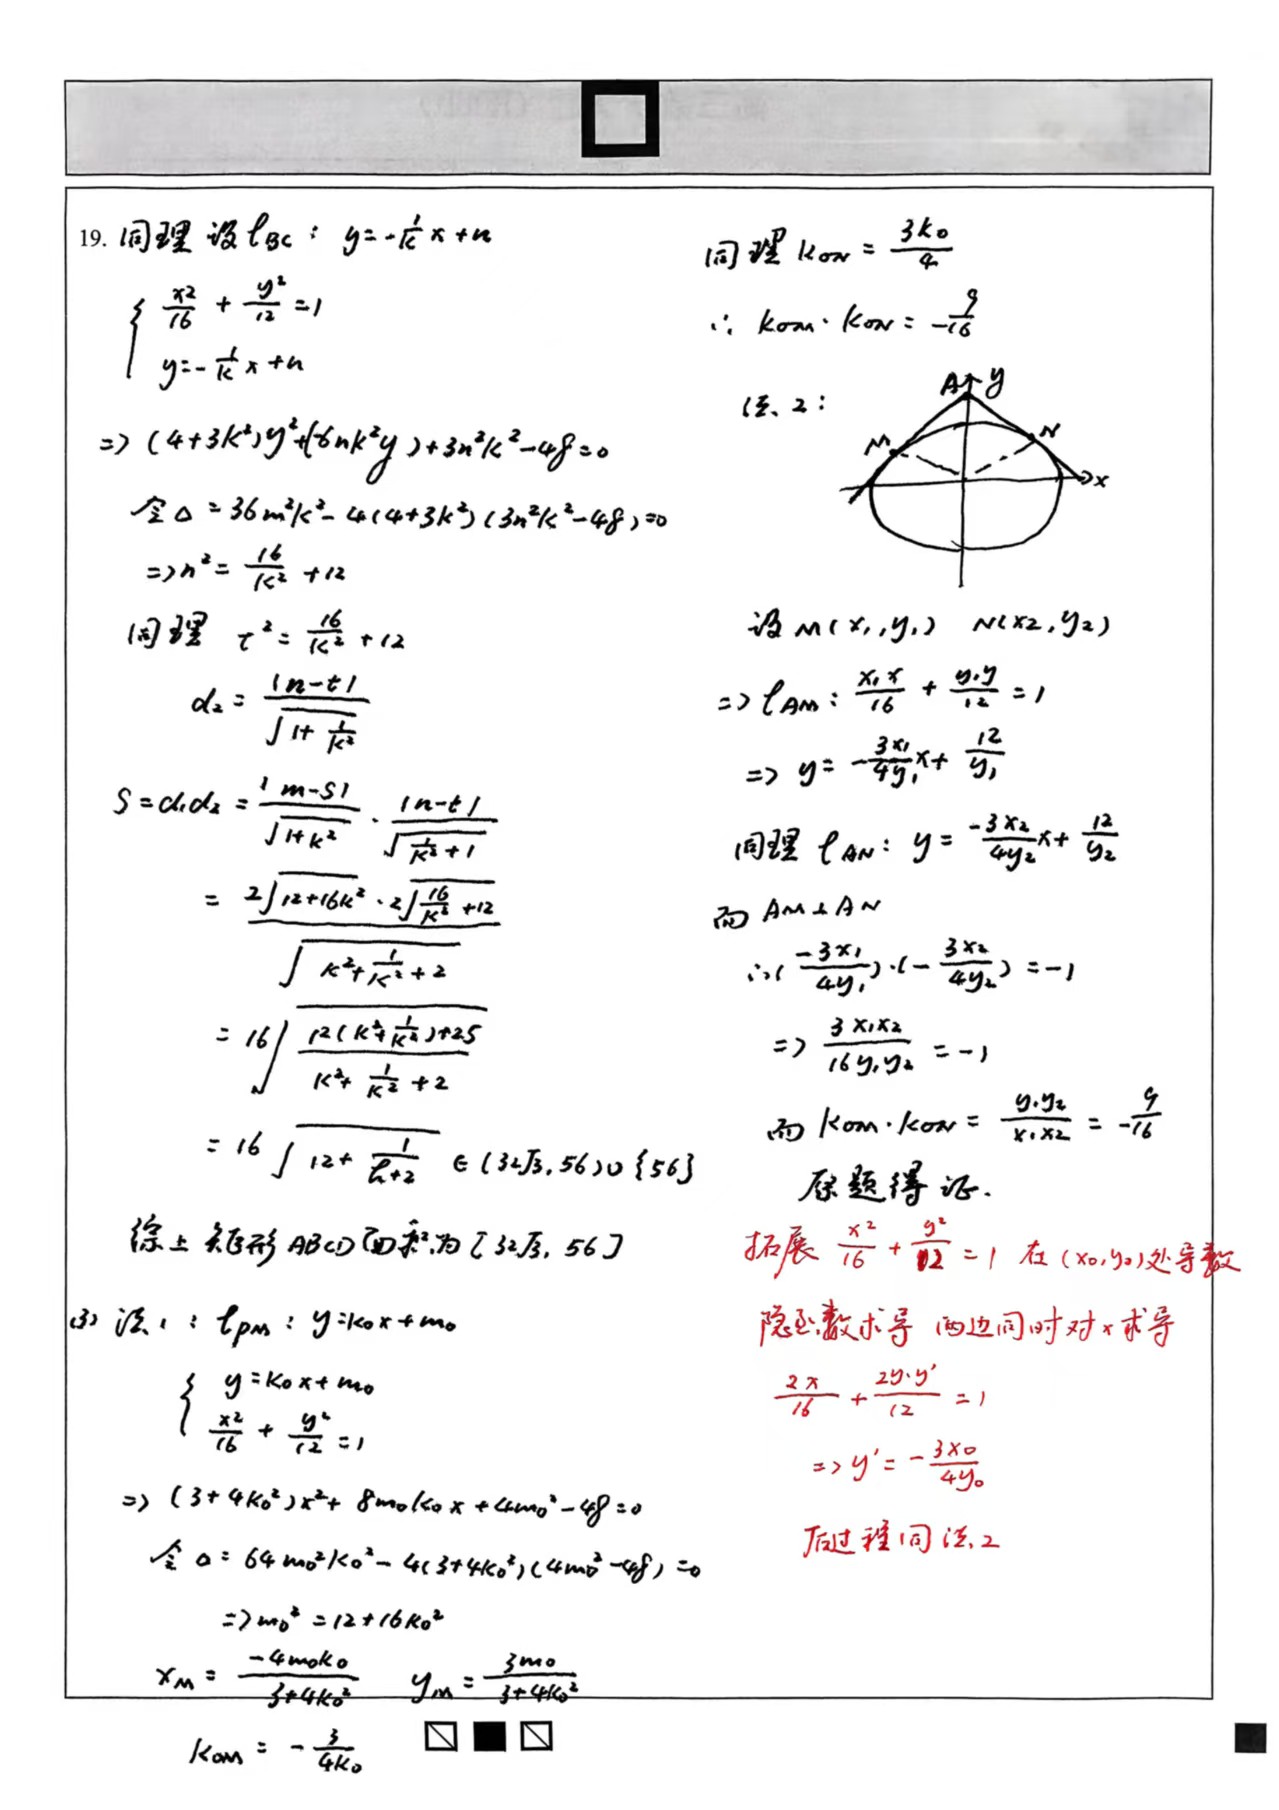 19. 同理 设 l_BC: y=-\frac{1}{k}x+n
{ \frac{x^2}{16}+\frac{y^2}{12}=1
y=-\frac{1}{k}x+n
=> (4+3k^2)y^2+(-6nk^2y)+3n^2k^2-48=0
令Δ=36m^2k^2-4(4+3k^2)(3n^2k^2-48)=0
=>n^2=\frac{16}{k^2}+12
同理 t^2=\frac{16}{k^2}+12
d_2=\frac{|n-t|}{\sqrt{1+\frac{1}{k^2}}}
S=d_1d_2=\frac{|m-s|}{\sqrt{1+k^2}}·\frac{|n-t|}{\sqrt{\frac{1}{k^2}+1}}
=\frac{2\sqrt{12+16k^2}·2\sqrt{\frac{16}{k^2}+12}}{\sqrt{k^2+\frac{1}{k^2}+2}}
=16\sqrt{\frac{12(k^2+\frac{1}{k^2})+25}{k^2+\frac{1}{k^2}+2}}
=16\sqrt{12+\frac{1}{h+2}} ∈(32\sqrt{3},56)∪{56}
综上 矩形ABCD面积为[32\sqrt{3},56]
(3) 法1: l_PM: y=k_0x+m_0
{ y=k_0x+m_0
\frac{x^2}{16}+\frac{y^2}{12}=1
=> (3+4k_0^2)x^2+8m_0k_0x+4m_0^2-48=0
令Δ=64m_0^2k_0^2-4(3+4k_0^2)(4m_0^2-48)=0
=>m_0^2=12+16k_0^2
x_M=\frac{-4m_0k_0}{3+4k_0^2} y_M=\frac{3m_0}{3+4k_0^2}
k_OM=-\frac{3}{4k_0}
同理 k_ON=\frac{3k_0}{4}
∴ k_OM·k_ON=-\frac{9}{16}
法2:
A y
M N
x
设M(x_1,y_1) N(x_2,y_2)
=> l_AM: \frac{x_1x}{16}+\frac{y_1y}{12}=1
=> y=-\frac{3x_1}{4y_1}x+\frac{12}{y_1}
同理 l_AN: y=\frac{-3x_2}{4y_2}x+\frac{12}{y_2}
而 AM⊥AN
∴(\frac{-3x_1}{4y_1})·(-\frac{3x_2}{4y_2})=-1
=> \frac{3x_1x_2}{16y_1y_2}=-1
而 k_OM·k_ON=\frac{y_1y_2}{x_1x_2}=-\frac{9}{16}
原题得证.
拓展 \frac{x^2}{16}+\frac{y^2}{12}=1 在(x_0,y_0)处导数
隐函数求导 两边同时对x求导
\frac{2x}{16}+\frac{2y·y'}{12}=1
=>y'=-\frac{3x_0}{4y_0}
后过程同法2